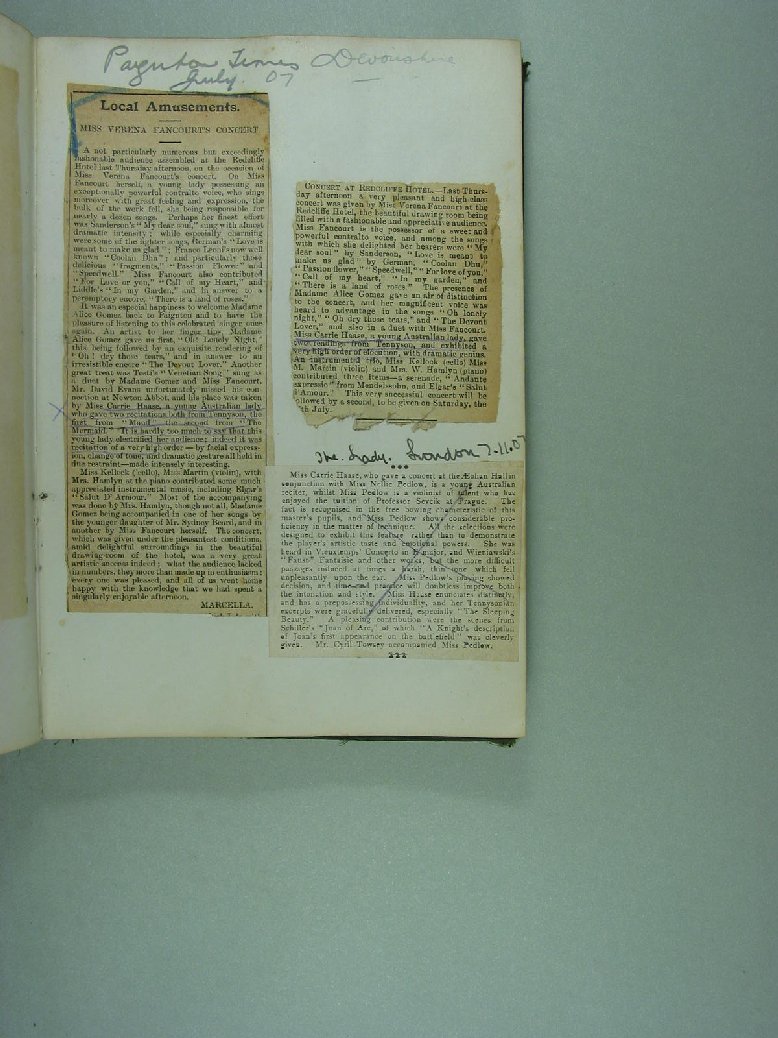 Paignton Times Devonshire
July. 07
Local Amusements.
MISS VERENA FANCOURT'S CONCERT
A not particularly numerous but exceedingly
fashionable audience assembled at the Redcliffe
Hotel last Thursday afternoon, on the occasion of
Miss Verena Fancourt's concert. On Miss
Fancourt herself, a young lady possessing an
exceptionally powerful contralto voice, who sings
moreover with great feeling and expression, the
bulk of the work fell, she being responsible for
nearly a dozen songs. Perhaps her finest effort
was Sanderson's "My dear soul," sung with almost
dramatic intensity; while especially charming
were some of the lighter songs, German's "Love is
meant to make us glad"; Franco Leoni's now well
known "Coolan Dhu"; and particularly those
delicious "fragments," "Passion Flower" and
"Speedwell." Miss Fancourt also contributed
"For Love of you," "Call of my Heart," and
Liddle's "In my Garden," and in answer to a
peremptory encore, "There is a land of roses."
It was an especial happiness to welcome Madame
Alice Gomez back to Paignton and to have the
pleasure of listening to this celebrated singer once
again. An artist to her finger tips, Madame
Alice Gomez gave us first, "Oh! Lonely Night,"
this being followed by an exquisite rendering of
"Oh! dry those tears," and in answer to an
irresistible encore "The Devout Lover." Another
great treat was Tosti's "Venetian Song" sung as
a duet by Madame Gomez and Miss Fancourt.
Mr. David Evans unfortunately missed his con-
nection at Newton Abbot, and his place was taken
by Miss Carrie Haase, a young Australian lady
who gave two recitations both from Tennyson, the
first from "Maud" the second from "The
Mermaid." It is hardly too much to say that this
young lady electrified her audience; indeed it was
recitation of a very high order—by facial express-
ion, change of tone, and dramatic gesture all held in
due restraint—made intensely interesting.
Miss Kellock ('cello), Miss Martin (violin), with
Mrs. Hamlyn at the piano contributed some much
appreciated instrumental music, including Elgar's
"Salut D' Armour." Most of the accompanying
was done by Mrs. Hamlyn, though not all, Madame
Gomez being accompanied in one of her songs by
the younger daughter of Mr. Sydney Beard, and in
another by Miss Fancourt herself. The concert,
which was given under the pleasantest conditions,
amid delightful surroundings in the beautiful
drawing-room of the hotel, was a very great
artistic success indeed; what the audience lacked
in numbers, they more than made up in enthusiasm;
every one was pleased, and all of us went home
happy with the knowledge that we had spent a
singularly enjoyable afternoon.
MARCELLA.
CONCERT AT REDCLIFFE HOTEL.—Last Thurs-
day afternoon a very pleasant and high-class
concert was given by Miss Verena Fancourt at the
Redcliffe Hotel, the beautiful drawing room being
filled with a fashionable and appreciative audience.
Miss Fancourt is the possessor of a sweet and
powerful contralto voice, and among the songs
with which she delighted her hearers were "My
dear soul" by Sanderson, "Love is meant to
make us glad" by German, "Coolan Dhu,"
"Passion flower," "Speedwell," "For love of you,"
"Call of my heart," "In my garden," and
"There is a land of roses." The presence of
Madame Alice Gomez gave an air of distinction
to the concert, and her magnificent voice was
heard to advantage in the songs "Oh lonely
night," "Oh dry those tears," and "The Devout
Lover," and also in a duet with Miss Fancourt.
Miss Carrie Haase, a young Australian lady, gave
two readings from Tennyson, and exhibited a
very high order of elocution, with dramatic genius.
An instrumental trio, Miss Kellock (cello) Miss
M. Martin (violin) and Mrs. W. Hamlyn (piano)
contributed three items—a serenade, "Andante
expressio" from Mendelssohn, and Elgar's "Salut
d'Amour." This very successful concert will be
followed by a second, to be given on Saturday, the
7th July.
The Lady. London 7.11.07
Miss Carrie Haase, who gave a concert at the Æolian Hall in
conjunction with Miss Nellie Pedlow, is a young Australian
reciter, whilst Miss Pedlow is a violinist of talent who has
enjoyed the tuition of Professor Sevcik at Prague. The
fact is recognised in the free bowing characteristic of this
master's pupils, and Miss Pedlow shows considerable pro-
ficiency in the matter of technique. All the selections were
designed to exhibit this feature rather than to demonstrate
the player's artistic taste and emotional powers. She was
heard in Vieuxtemps' Concerto in E major, and Wieniawski's
"Faust" Fantaisie and other works, but the more difficult
passages induced at times a harsh, thin tone which fell
unpleasantly upon the ear. Miss Pedlow's playing showed
decision, and time and practice will doubtless improve both
the intonation and style. Miss Haase enunciates distinctly,
and has a prepossessing individuality, and her Tennysonian
excerpts were gracefully delivered, especially "The Sleeping
Beauty." A pleasing contribution were the scenes from
Schiller's "Joan of Arc," of which "A Knight's description
of Joan's first appearance on the battlefield" was cleverly
given. Mr. Cyril Towsey accompanied Miss Pedlow.
222